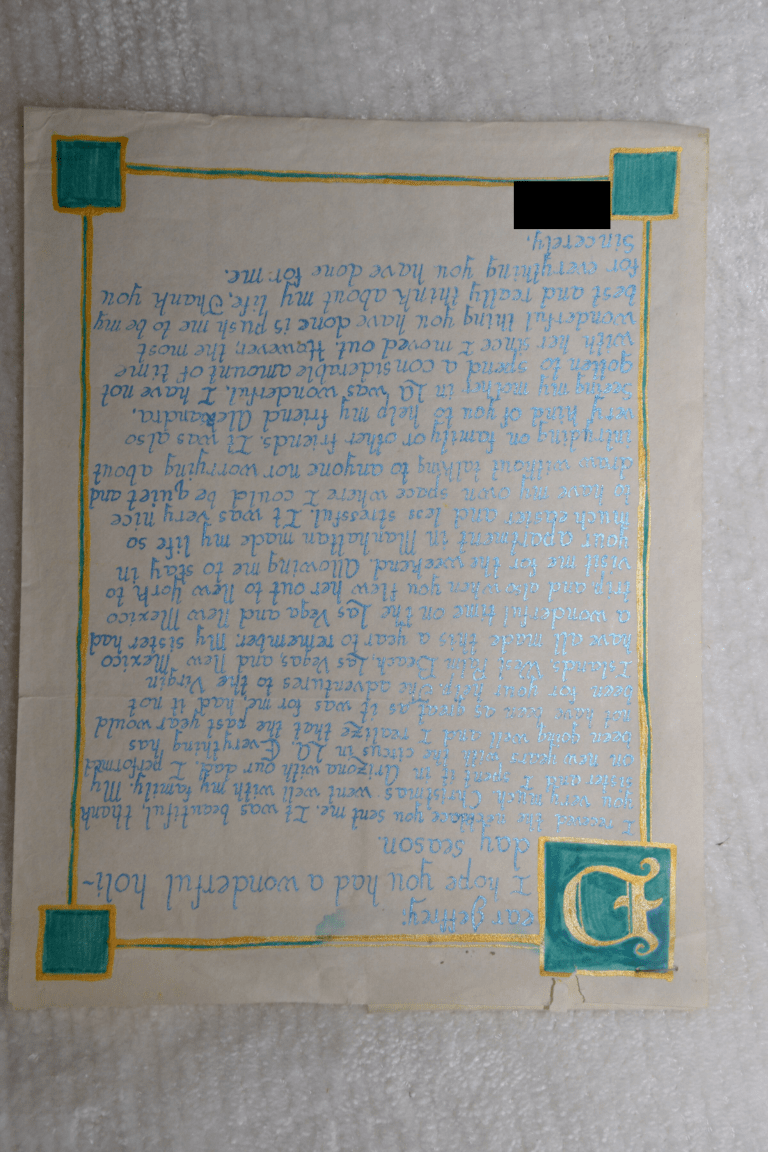 Dear Jeffrey,
I hope you had a wonderful holi-
day season.
I received the necklace you sent me. It was beautiful, thank
you very much. Christmas went well with my family. My
sister and I spent it in Arizona with our dad. I performed
on new years with the circus in LA. Everything has
been going well and I realize that the past year would
not have been as great as it was for me, had it not
been for your help. The adventures to the Virgin
Islands, West Palm Beach, Las Vegas, and New Mexico
have all made this a year to remember. My sister had
a wonderful time on the Las Vega and New Mexico
trip and also when you flew her out to New York to
visit me for the weekend. Allowing me to stay in
your apartment in Manhattan made my life so
much easier and less stressful. It was very nice
to have my own space where I could be quiet and
draw without talking to anyone nor worrying about
intruding on family or other friends. It was also
very kind of you to help my friend Alexandra.
Seeing my mother in LA was wonderful. I have not
gotten to spend a considerable amount of time
with her since I moved out. However, the most
wonderful thing you have done is push me to be my
best and really think about my life. Thank you
for everything you have done for me.
Sincerely,